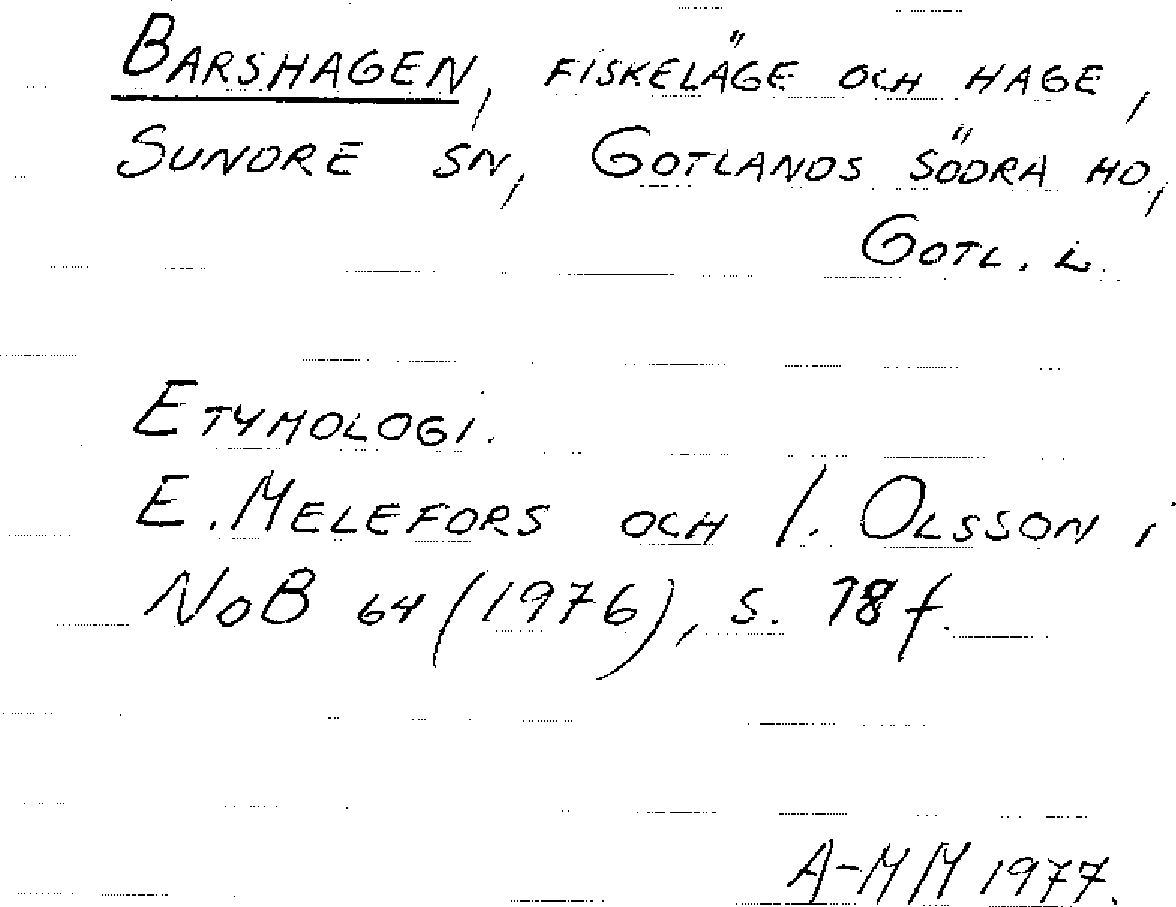 BARSHAGEN, FISKELÄGE OCH HAGE,
SUNDRE SN, GOTLANDS SÖDRA HD,
GOTL. L.
ETYMOLOGI.
E. MELEFORS OCH I. OLSSON i
NoB 64 (1976), s. 78 f.
A-MM 1977.